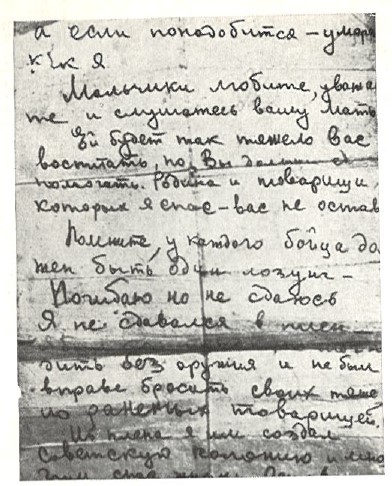 а если понадобится – умри
как я
Мальчики любите, уважай
те и слушатесь вашу Мать
Ей будет так тяжело Вас
воспитать, но Вы должны ей
помогать. Родина и товарищи,
которых я спас – вас не остав
Помните, у каждого бойца до
жен быть один лозунг –
Погибаю но не сдаюсь
Я не сдавался в плен
дить без оружия и не был
вправе бросить своих тяже
ло раненых товарищей.
Из плена я им создал
советскую колонию и мно
гим спас жизни